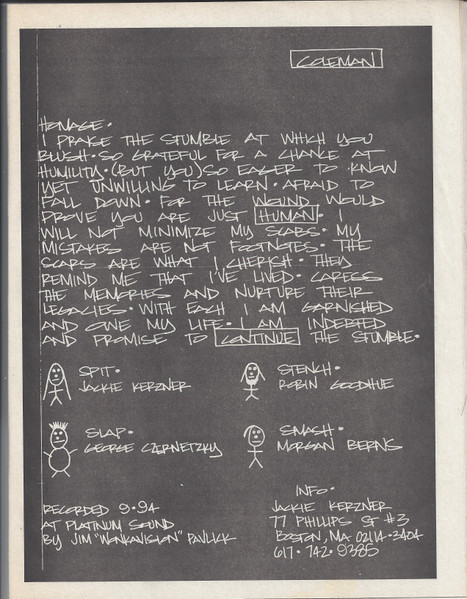 COLEMAN
HOMAGE.
I PRAISE THE STUMBLE AT WHICH YOU
BLUSH. SO GRATEFUL FOR A CHANCE AT
HUMILITY. (BUT YOU) SO EAGER TO KNOW
YET UNWILLING TO LEARN. AFRAID TO
FALL DOWN. FOR THE WOUND WOULD
PROVE YOU ARE JUST HUMAN. I
WILL NOT MINIMIZE MY SCABS. MY
MISTAKES ARE NOT FOOTNOTES. THE
SCARS ARE WHAT I CHERISH. THEY
REMIND ME THAT I'VE LIVED. CARESS
THE MEMORIES AND NURTURE THEIR
LEGACIES. WITH EACH I AM GARNISHED
AND OWE MY LIFE. I AM INDEBTED
AND PROMISE TO CONTINUE THE STUMBLE.
SPIT.
JACKIE KERZNER
STENCH.
ROBIN GOODHUE
SLAP.
GEORGE CZERNETZKY
SMASH.
MORGAN BERNS
RECORDED 9.94
AT PLATINUM SOUND
BY JIM "WONKAVISION" PAVLICK
INFO.
JACKIE KERZNER
77 PHILLIPS ST #3
BOSTON, MA 02114.3404
617.742.9385